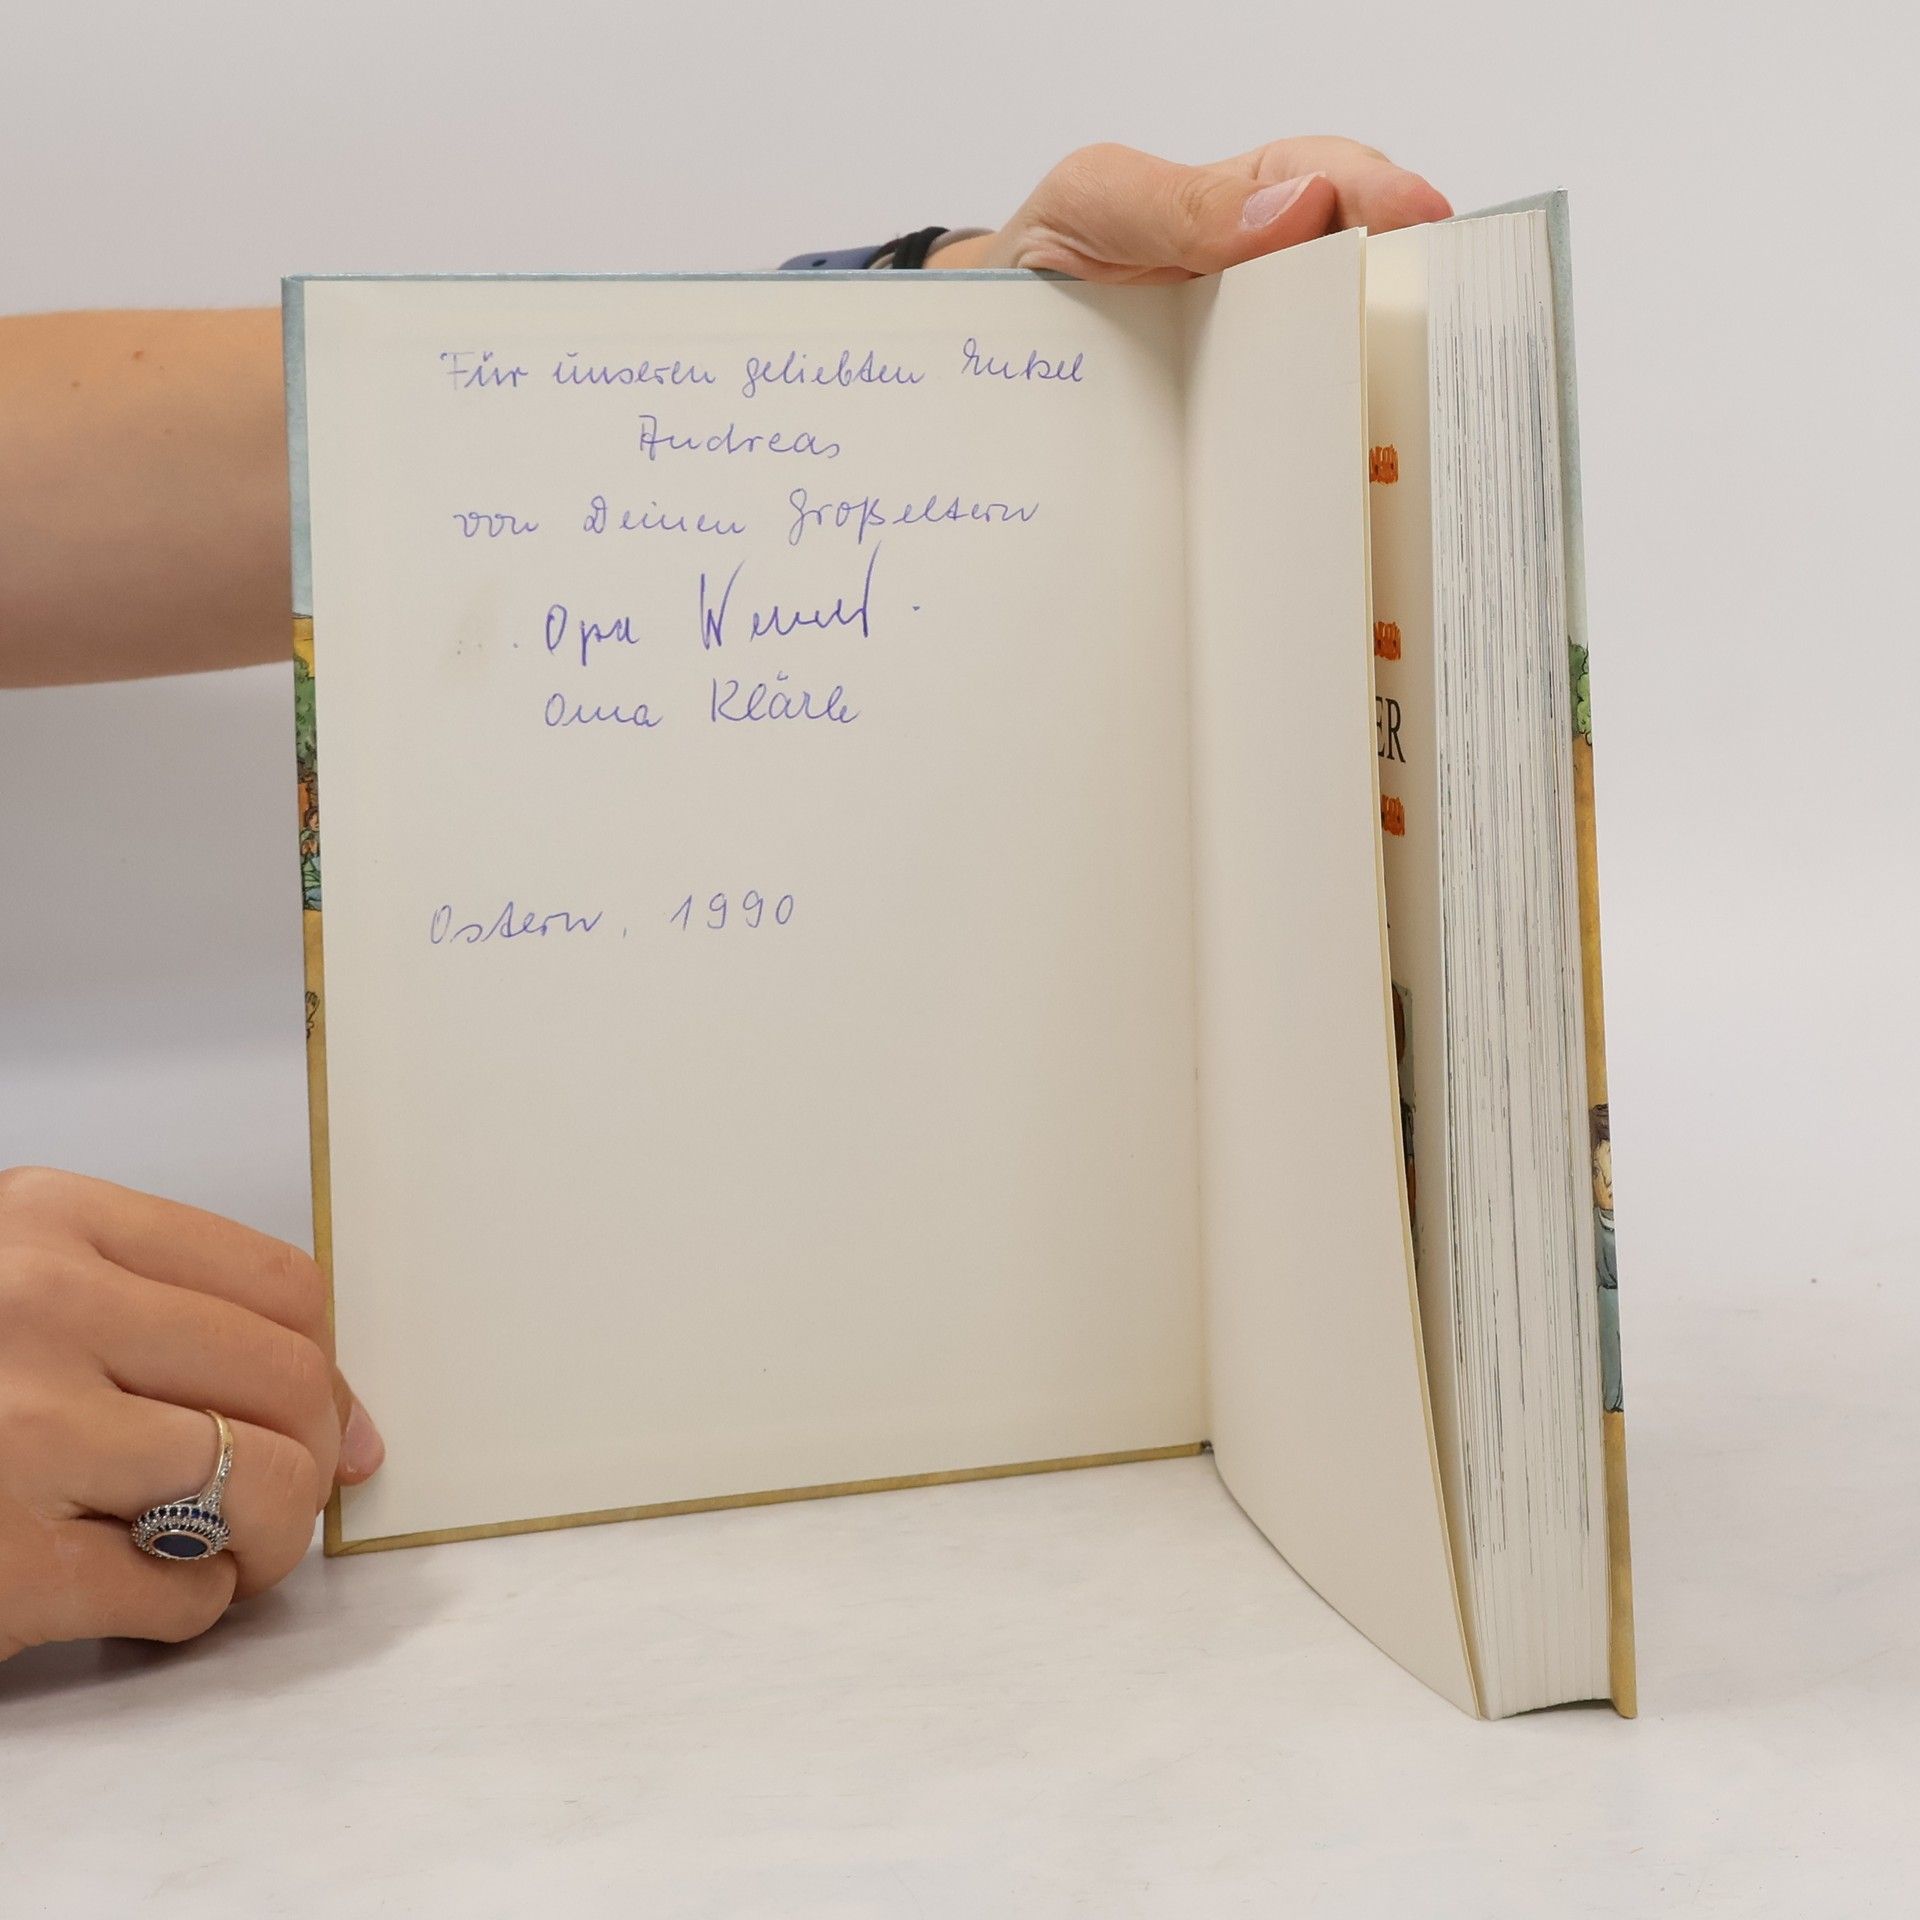 Für unseren geliebten Enkel
Andreas
von Deinen Großeltern
Opa
Oma Klärle
Ostern, 1990
ER